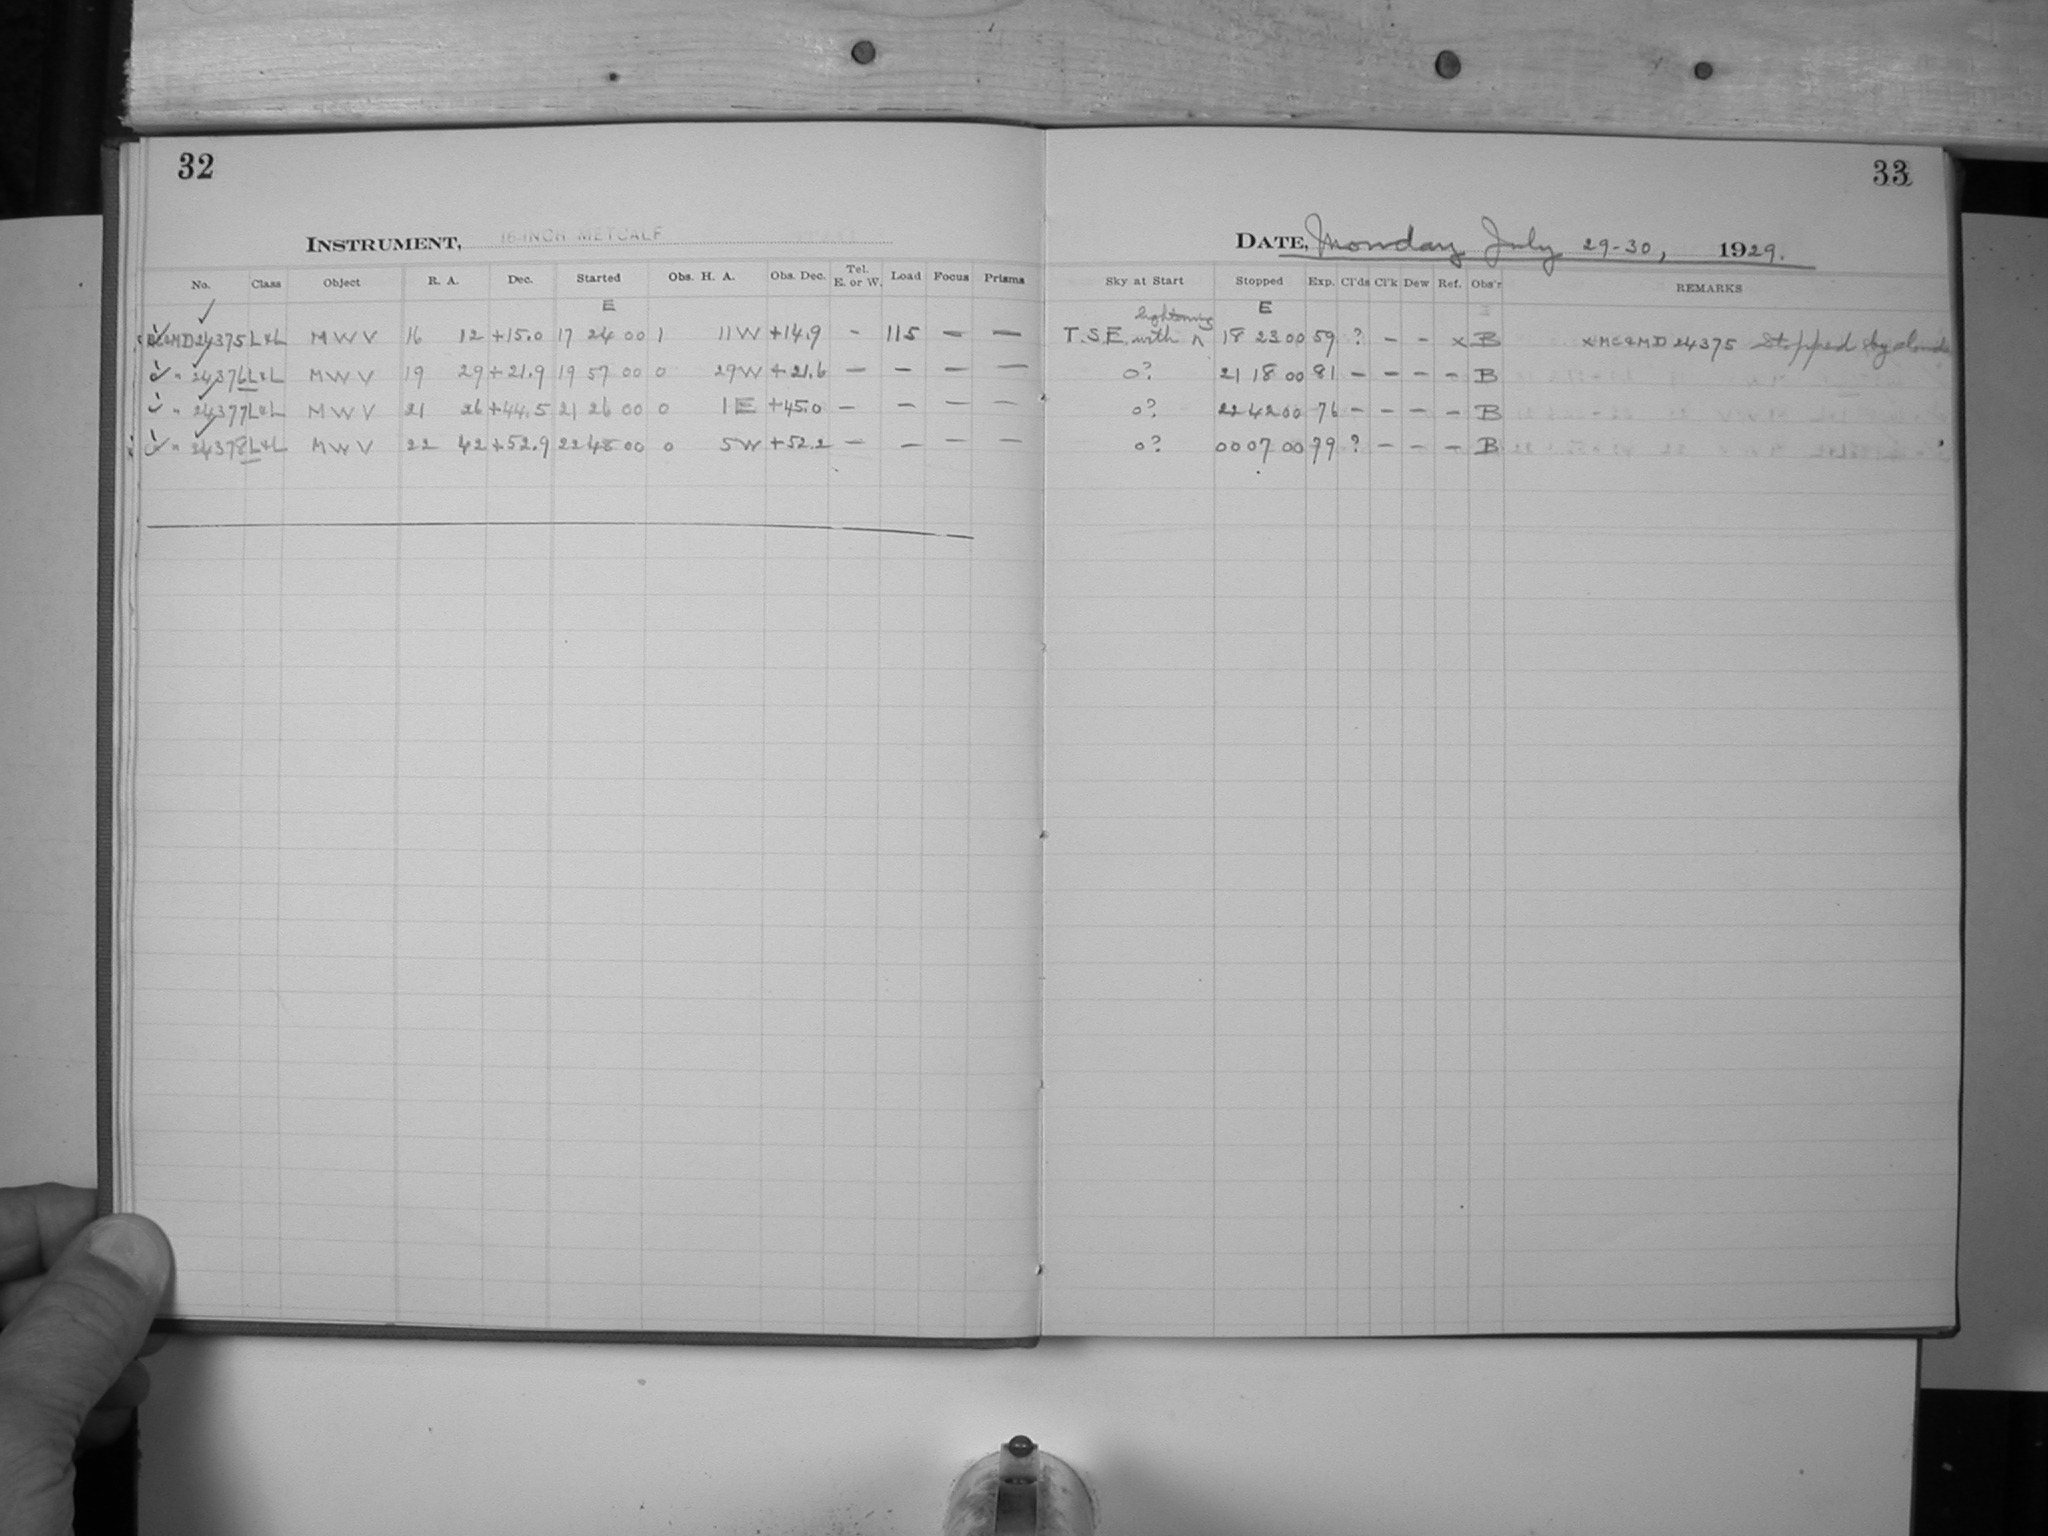 32
INSTRUMENT, 16-INCH METCALF
No. Class Object R. A. Dec. Started Obs. H. A. Obs. Dec. Tel. E. or W. Load Focus Prisms
E
MC&MD 24375 L&L M W V 16 12 +15.0 17 24 00 1 11 W +14.9 - 115 - -
" 24376 L&L M W V 19 29 +21.9 19 57 00 0 29 W +21.6 - - - -
" 24377 L&L M W V 21 26 +44.5 21 26 00 0 1 E +45.0 - - - -
" 24378 L&L M W V 22 42 +52.9 22 48 00 0 5 W +52.2 - - - -
33
DATE, Monday July 29-30, 1929.
Sky at Start Stopped Exp. Cl'ds Cl'k Dew Ref. Obs'r REMARKS
E
lightning
T.S.E. with ^ 18 23 00 59 ? - - x B x MC&MD 24375 Stopped by clouds
0? 21 18 00 81 - - - - B
0? 22 42 00 76 - - - - B
0? 00 07 00 79 ? - - - B